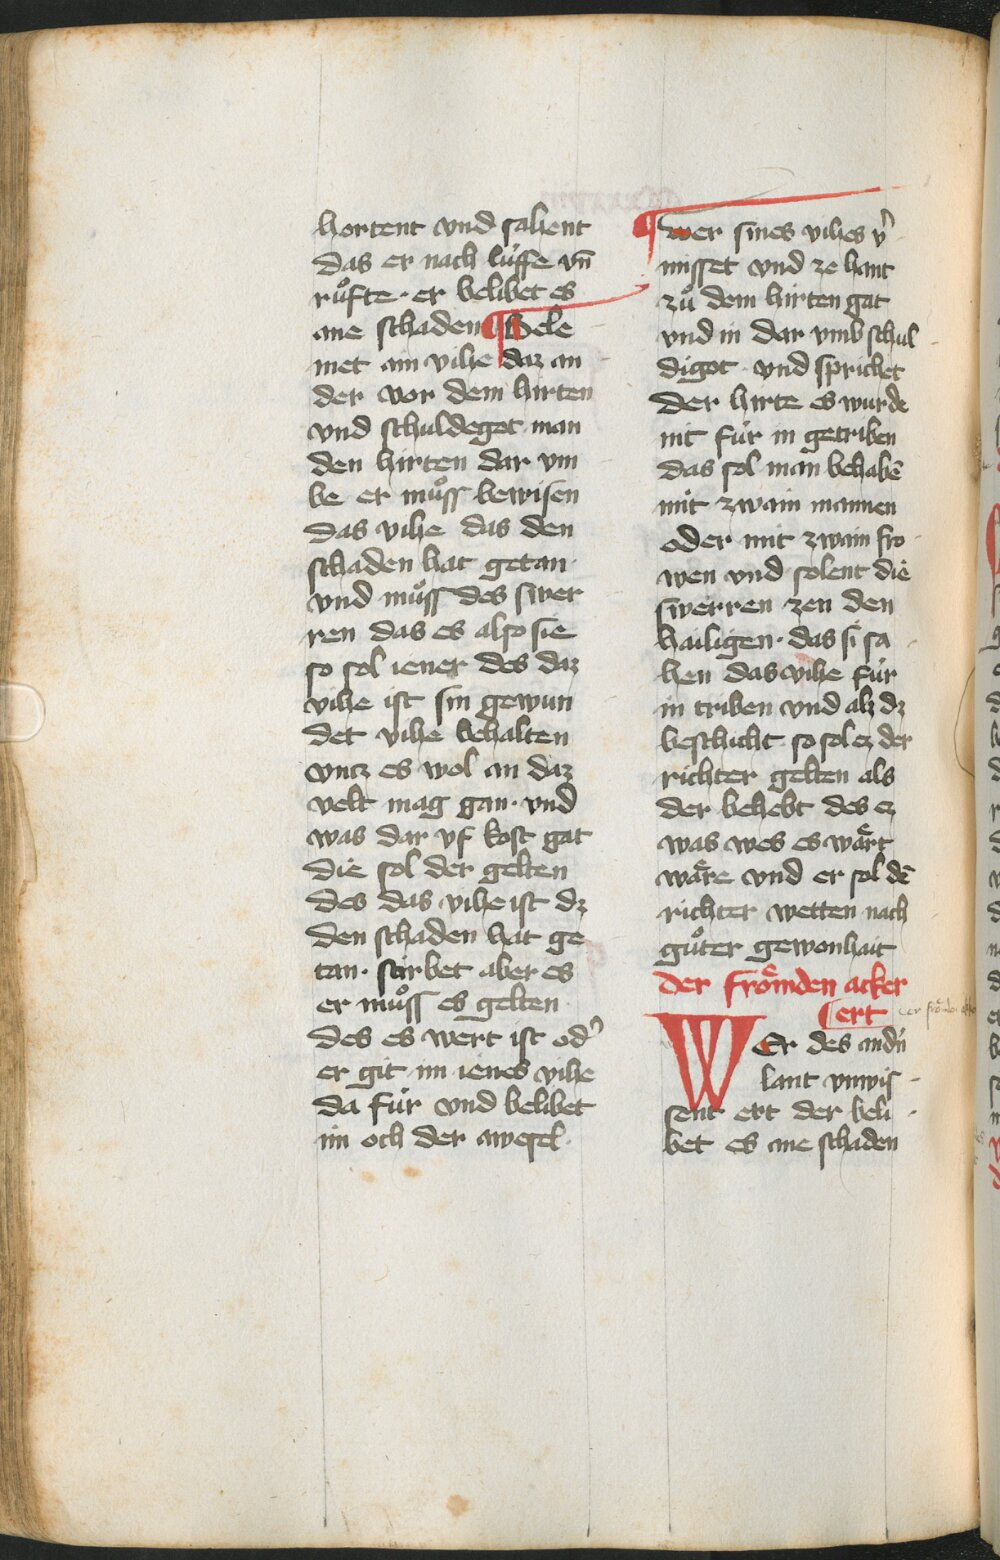 hortent vnd sahent
das er nach luͤffe vn̄
ruͦfte · er belibet es
ane schaden ¶ Bele
met ain vihe daz an
der vor dem hirten
vnd schuldegot man
den hirten dar vm
be er muͦss bewisen
das vihe das den
schaden hat getan ·
vnd muͦss des swer
ren das es also sie
so sol iener des daz
vihe ist sin gewun
det vihe behalten
vntz es wol an daz
velt mag gan · vnd
was dar vf kost gat
die sol der gelten
des das vihe ist dz
den schaden hat ge
tan · stirbet aber es
er muͦss es gelten
des es wert ist od᾽
er git im ienes vihe
da fuͤr vnd belibet
im och der awesel ·
¶ wer sines vihes v᾽
misset vnd ze hant
zuͦ dem hirten gat
vnd in dar vmb schul
digot · vnd sprichet
der hirte es wurde
nit fuͤr in getriben
das sol man behabē
mit zwain mannen
oder mit zwain fro
wen vnd solent die
swerren zen den
hailigen · das si sa
hen das vihe fuͤr
in triben vnd alz dz
beschicht · so sol ez der
richter gelten als
der behebt des ez
was wes es waͤrt
waͤre vnd er sol dē
richter wetten nach
guͦter gewonhait
der froͤmden acker
ert
WEr des andn᾽
lant vnwis
sent ert der beli
bet es ane schaden